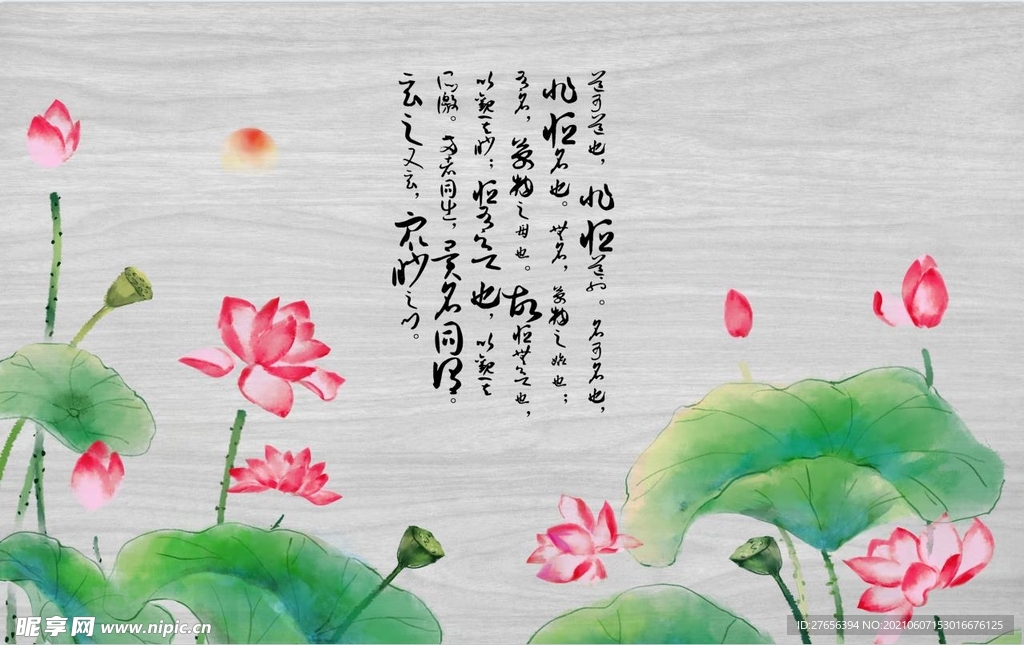 道可道也，非恒道也。名可名也，
非恒名也。無名，萬物之始也；
有名，萬物之母也。故恒無欲也，
以觀其眇；恒有欲也，以觀其
所徼。两者同出，異名同謂。
玄之又玄，衆眇之门。
昵享网 www.nipic.cn
ID:27656394 NO:20210607153016676125